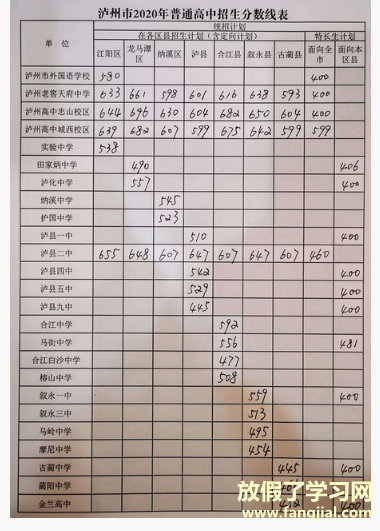 泸州市2020年普通高中招生分数线表
单 位 统招计划
在各区县招生计划(含定向计划) 特长生计划
江阳区 龙马潭区 纳溪区 泸县 合江县 叙永县 古蔺县 面向全市 面向本区县
泸州市外国语学校 580 400
泸州老窖天府中学 633 661 598 601 616 638 593 400
泸州高中忠山校区 644 696 630 604 682 650 604 400
泸州高中城西校区 639 682 607 599 675 642 599 599
实验中学 538
田家炳中学 490 406
泸化中学 557 400
纳溪中学 545
护国中学 523
泸县一中 510 400
泸县二中 655 648 607 647 607 647 607 460
泸县四中 542 400
泸县五中 529 400
泸县九中 445 400
合江中学 592
马街中学 556 481
合江白沙中学 477
榕山中学 508
叙永一中 559 400
叙永三中 513
马岭中学 495
摩尼中学 454
古蔺中学 445 400
蔺阳中学
金兰高中 400
放假了学习网
www.fangjial.com